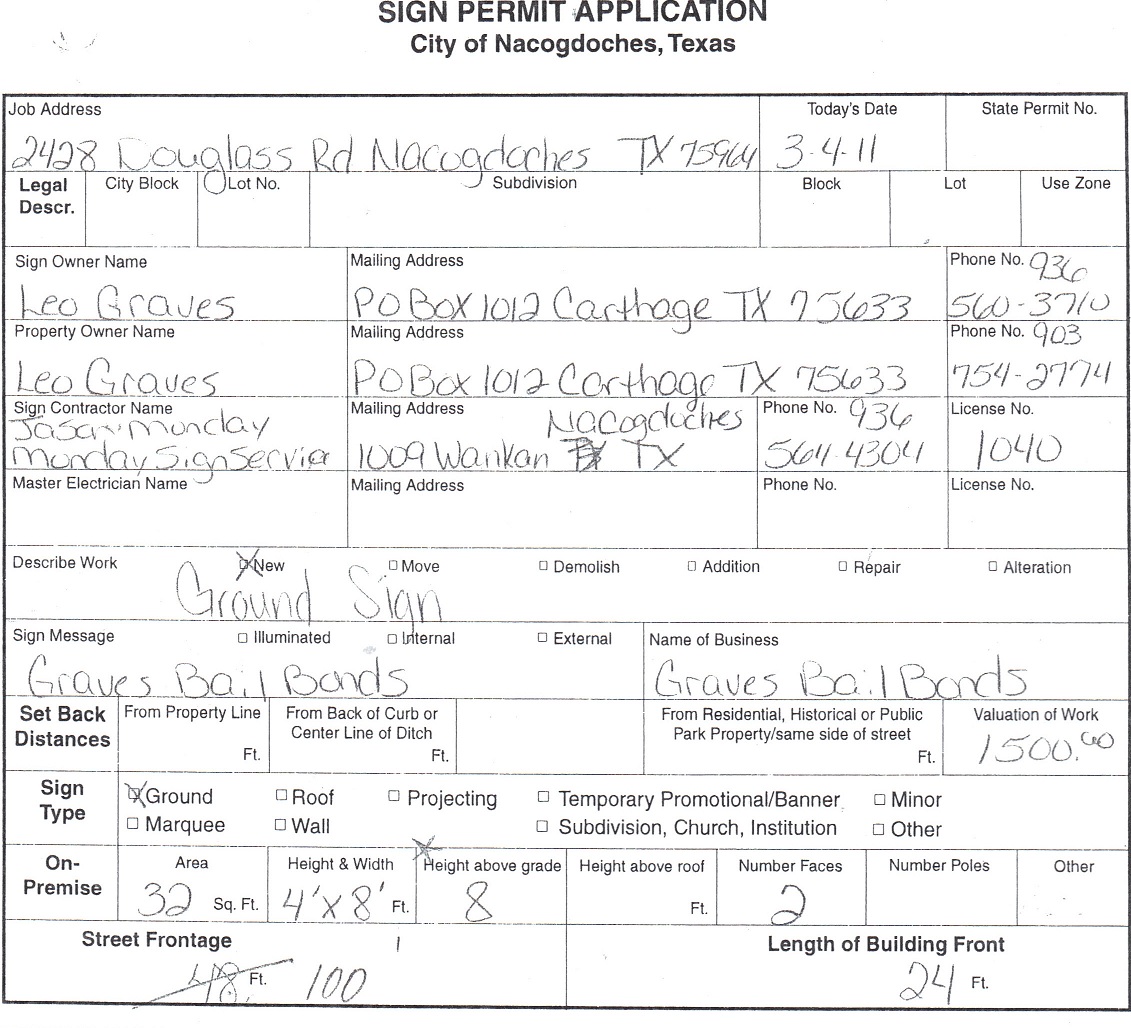 SIGN PERMIT APPLICATION
City of Nacogdoches, Texas
Job Address Today's Date State Permit No.
2428 Douglass Rd Nacogdoches TX 75964 3-4-11
Legal Descr. City Block Lot No. Subdivision Block Lot Use Zone
Sign Owner Name Mailing Address Phone No. 936
Leo Graves PO Box 1012 Carthage TX 75633 560-3710
Property Owner Name Mailing Address Phone No. 903
Leo Graves PO Box 1012 Carthage TX 75633 754-2774
Sign Contractor Name Mailing Address Nacogdoches Phone No. 936 License No.
Jason Monday
Monday Sign Service 1009 Wankan TX 564-4304 1040
Master Electrician Name Mailing Address Phone No. License No.
Describe Work New Move Demolish Addition Repair Alteration
Ground Sign
Sign Message Illuminated Internal External Name of Business
Graves Bail Bonds Graves Bail Bonds
Set Back Distances From Property Line Ft. From Back of Curb or Center Line of Ditch Ft. From Residential, Historical or Public Park Property/same side of street Ft. Valuation of Work
1500.00
Sign Type Ground Roof Projecting Temporary Promotional/Banner Minor
Marquee Wall Subdivision, Church, Institution Other
On-Premise Area Height & Width Height above grade Height above roof Number Faces Number Poles Other
32 Sq. Ft. 4'x8' Ft. 8 Ft. 2
Street Frontage Length of Building Front
48 Ft. 100 24 Ft.